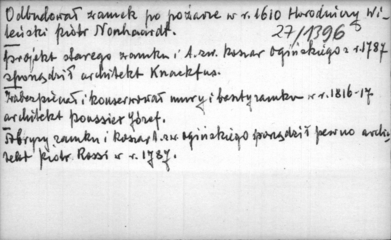 Odbudował zamek po pożarze w r. 1610 Horodniczy Wi-
leński Piotr Nonhardt.
27/1396
Projekt starego zamku i t. zw. koszar Ogińskiego z r. 1787
sporządził architekt Knackfus.
Zabezpieczał i konserwował mury i baszty zamku w r. 1816-17
architekt Poussier Józef.
Abrysy zamku i koszar t. zw. Ogińskiego porządził pewno archi-
tekt Piotr Rossi w r. 1787.